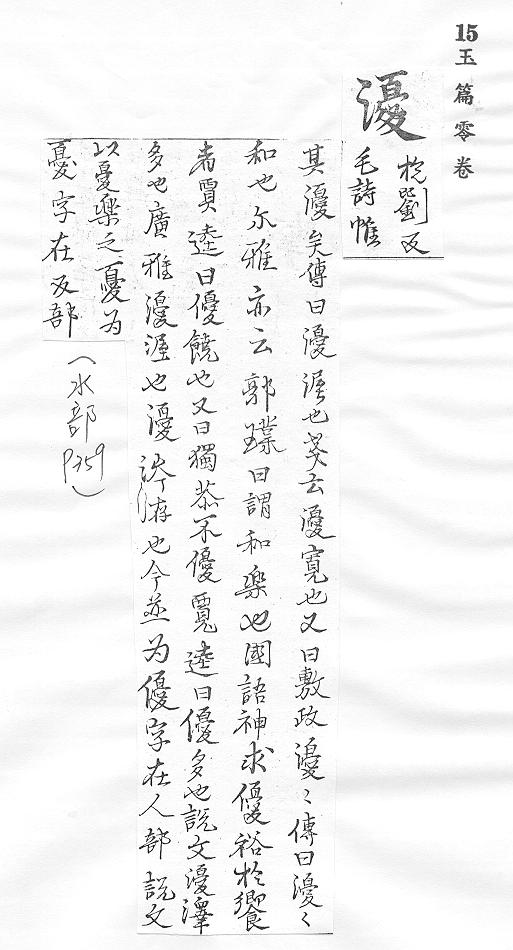 15玉篇零卷
瀀
扵劉反
毛詩惟
其瀀矣傳曰瀀渥也茟云瀀寛也又曰敷政瀀〻傳曰瀀〻
和也尒雅亦云郭璞曰謂和樂也國語神求優裕扵饗
者賈逵曰優饒也又曰獨恭不優賈逵曰優多也説文瀀澤
多也廣雅瀀渥也瀀洊也今並为優字在人部說文
以憂樂之憂为
憂字在夊部
(水部
p359)